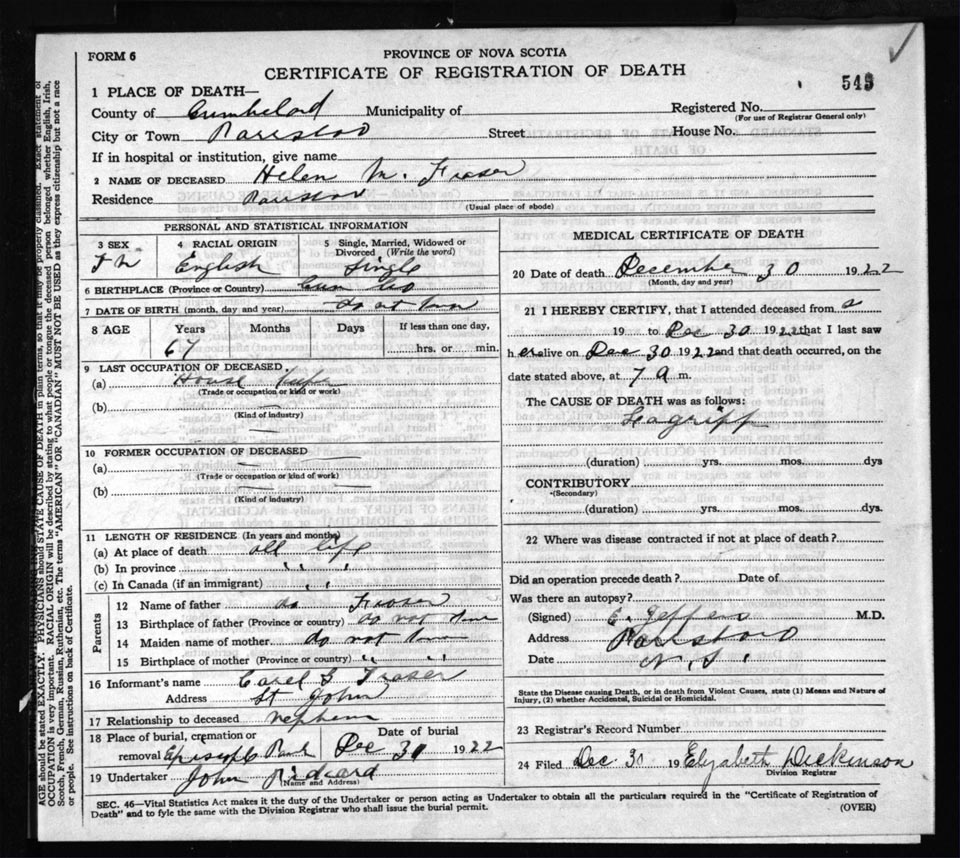 FORM 6
PROVINCE OF NOVA SCOTIA
CERTIFICATE OF REGISTRATION OF DEATH
545
1 PLACE OF DEATH—
County of Cumbeland Municipality of Registered No.
(For use of Registrar General only)
City or Town Parrsboro Street House No.
If in hospital or institution, give name
2 NAME OF DECEASED Helen M. Fraser
Residence Parrsboro
(Usual place of abode)
PERSONAL AND STATISTICAL INFORMATION
3 SEX 4 RACIAL ORIGIN 5 Single, Married, Widowed or Divorced (Write the word)
English Single
6 BIRTHPLACE (Province or Country) Cum Co
7 DATE OF BIRTH (month, day and year) do not know
8 AGE Years Months Days If less than one day,
67 hrs. or min.
9 LAST OCCUPATION OF DECEASED.
(a) House
(Trade or occupation or kind or work)
(b)
(Kind of industry)
10 FORMER OCCUPATION OF DECEASED
(a)
(Trade or occupation or kind of work)
(b)
(Kind of industry)
11 LENGTH OF RESIDENCE (In years and months)
(a) At place of death all life
(b) In province " "
(c) In Canada (if an immigrant) " "
Parents
12 Name of father do Fraser
13 Birthplace of father (Province or country) do not know
14 Maiden name of mother do not know
15 Birthplace of mother (Province or country) " "
16 Informant's name Fraser
Address St John
17 Relationship to deceased nephew
18 Place of burial, cremation or removal Date of burial
Dec 31 1922
19 Undertaker John Rickard
(Name and Address)
MEDICAL CERTIFICATE OF DEATH
20 Date of death December 30 1922
(Month, day and year)
21 I HEREBY CERTIFY, that I attended deceased from
19 to Dec 30 1922 that I last saw
her alive on Dec 30 1922 and that death occurred, on the
date stated above, at 7 a m.
The CAUSE OF DEATH was as follows:
Lagripp
(duration) yrs. mos. dys
CONTRIBUTORY
(Secondary)
(duration) yrs. mos. dys.
22 Where was disease contracted if not at place of death?
Did an operation precede death? Date of
Was there an autopsy?
(Signed) M.D.
Address Parrsboro
Date N. S.
State the Disease causing Death, or in death from Violent Causes, state (1) Means and Nature of Injury, (2) whether Accidental, Suicidal or Homicidal.
23 Registrar's Record Number
24 Filed Dec 30 19 Elizabeth Dickinson
Division Registrar
SEC. 46—Vital Statistics Act makes it the duty of the Undertaker or person acting as Undertaker to obtain all the particulars required in the "Certificate of Registration of
Death" and to fyle the same with the Division Registrar who shall issue the burial permit.
(OVER)
AGE should be stated EXACTLY. PHYSICIANS should STATE CAUSE OF DEATH in plain terms, so that it may be properly classified. Exact statement of
OCCUPATION is very important. RACIAL ORIGIN will be described by stating to what people or tongue the deceased person belonged whether English, Irish,
Scotch, French, German, Russian, Ruthenian, etc. The terms "AMERICAN" OR "CANADIAN" MUST NOT BE USED as they express citizenship but not a race
or people. See instructions on back of Certificate.